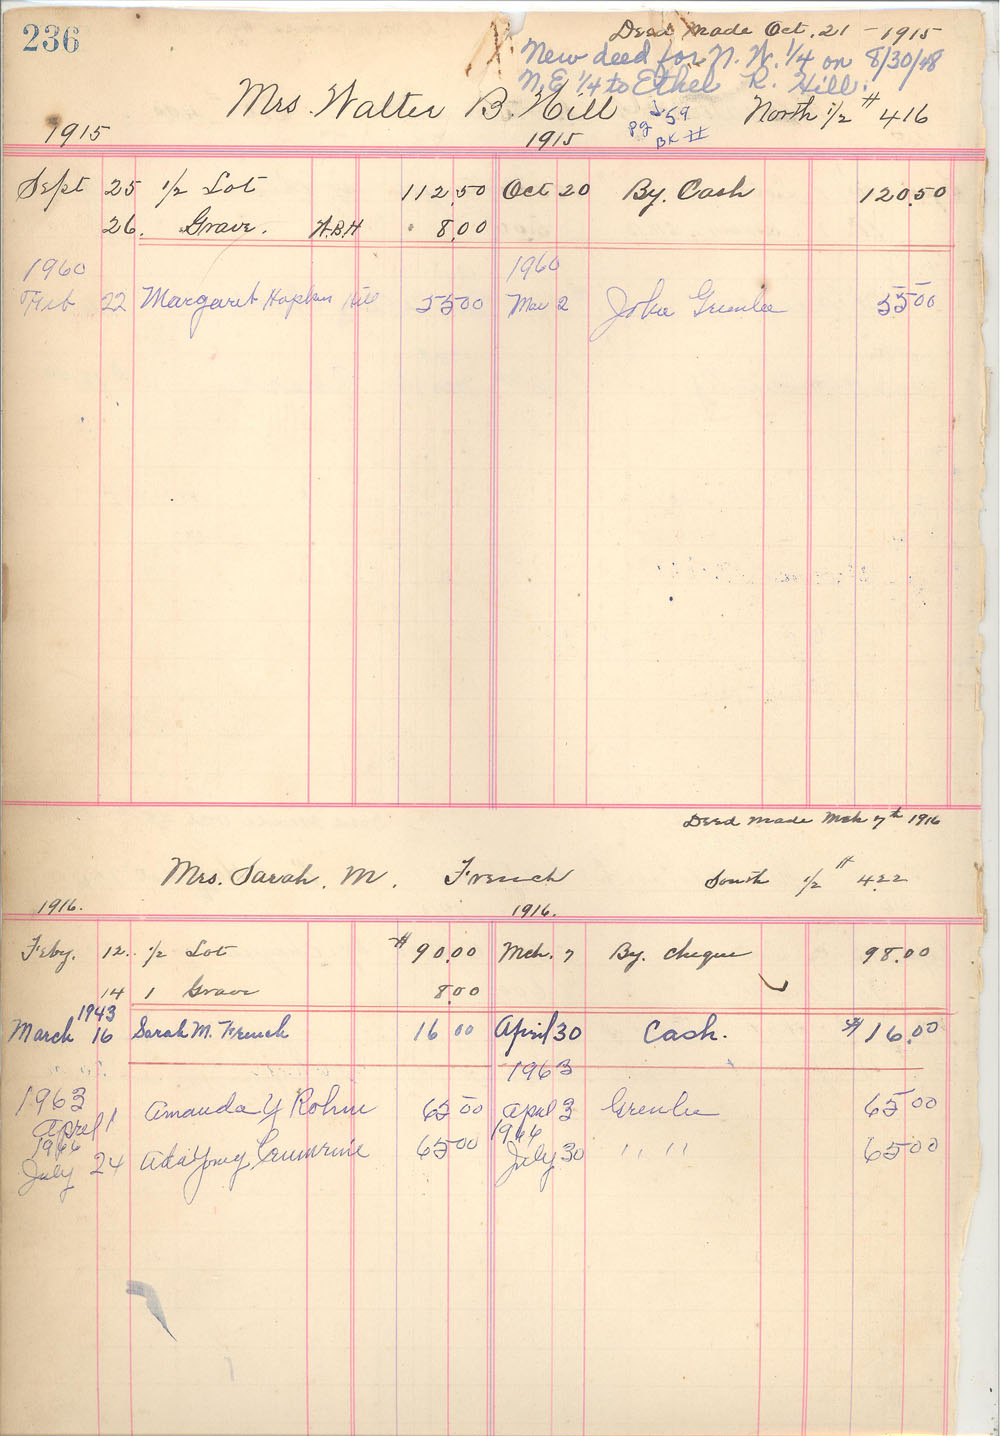 236
Deed made Oct. 21 - 1915
New deed for N. W. 1/4 on 8/30/48
N. E. 1/4 to Ethel R. Hill.
Mrs. Walter B. Hill North 1/2 # 416
pg 59
BK II
1915 1915
Sept 25 1/2 Lot 112.50 Oct 20 By. Cash 120.50
26. Grave. 8.00
1960 1960
Feb 22 Margaret Hopkins Hill 55 00 Mar 2 John Greenlee 55 00
Deed made Mch 7th 1916
Mrs. Sarah. M. French South 1/2 # 422
1916. 1916.
Feby. 12. 1/2 Lot # 90.00 Mch. 7 By. Cheque 98.00
14 1 Grave 8.00
1943
March 16 Sarah M. French 16 00 April 30 Cash. $ 16.00
1963 1963
April 1 Amanda Y Rohm 65 00 April 3 Greenlee 65 00
1966 1966
July 24 Ada Crumrine 65 00 July 30 " " 65 00